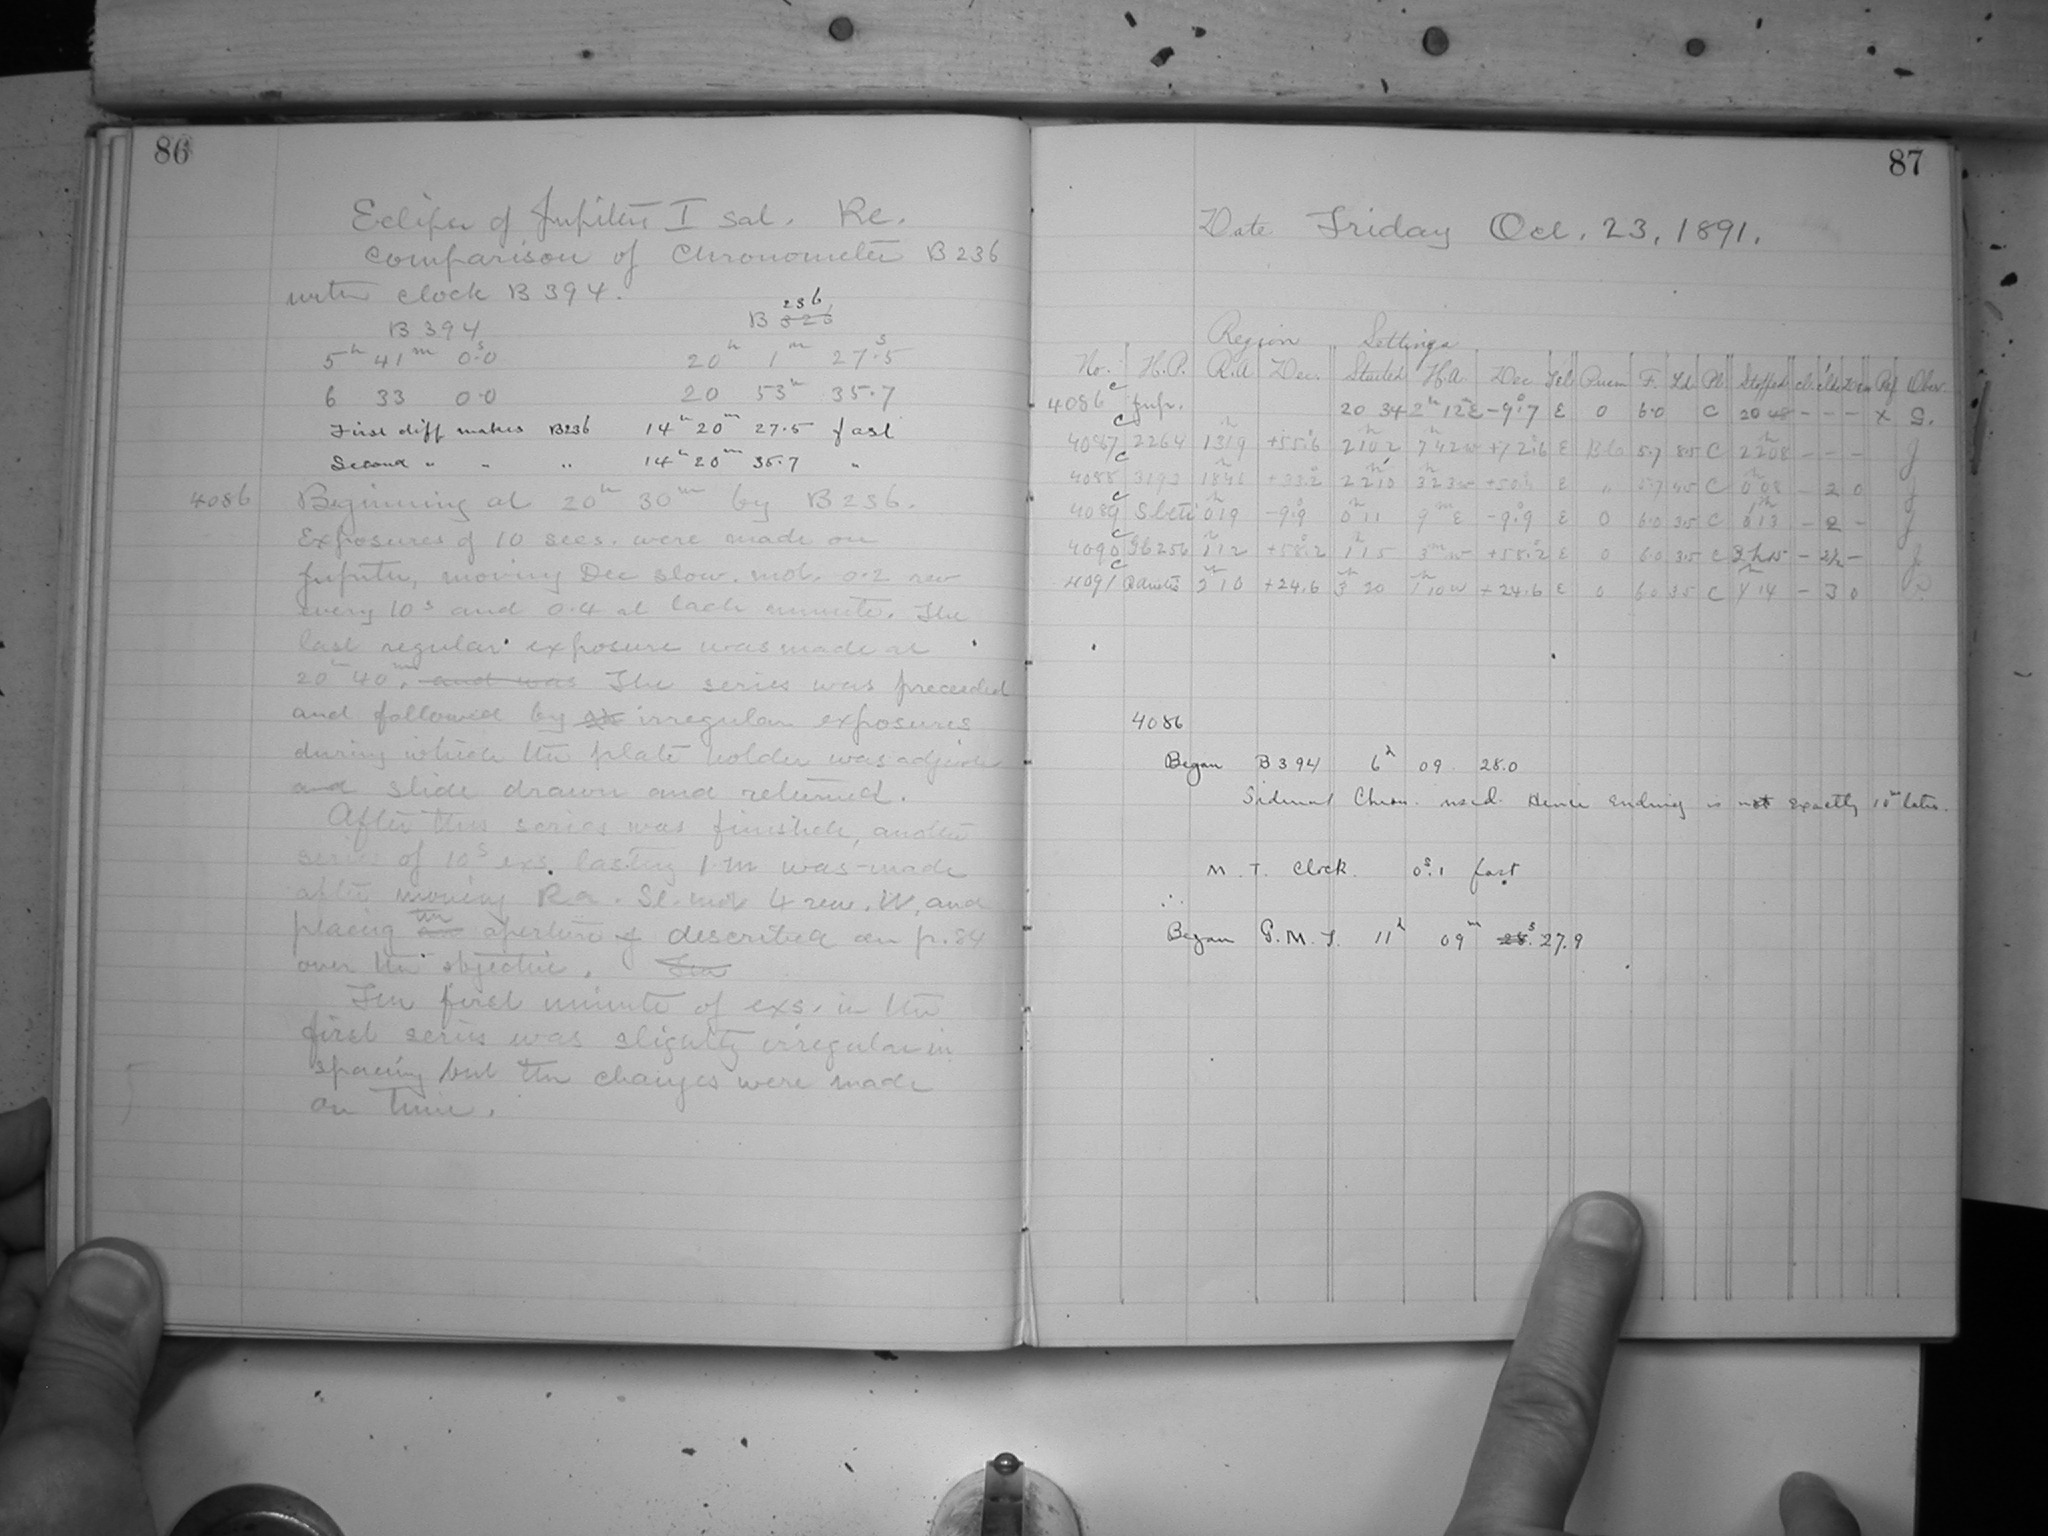 86
Eclipse of Jupiter I sat. Re.
Comparison of Chronometer B 236
with clock B 394.
B 394 B 323 236
5h 41m 0s.0 20h 1m 27s.5
6 33 0.0 20 53m 35.7
First diff makes B236 14h 20m 27.5 fast
Second " " " 14h 20m 35.7 "
4086 Beginning at 20h 30m by B 236.
Exposures of 10 secs. were made on
Jupiter, moving Dec slow. mot. 0.2 rev
every 10s and 0.4 at each minute. The
last regular exposure was made at
20h 40m. and was The series was preceeded
and followed by irregular exposures
during which the plate holder was adjusted
and slide drawn and returned.
After this series was finished, another
series of 10s exs. lasting 1 m was made
after moving R.a. Sl. mot 4 rev. W, and
placing the aperture described on p. 84
over the objective.
The first minute of exs. in the
first series was slightly irregular in
spacing but the changes were made
on time.
87
Date Friday Oct. 23, 1891.
Region Settings
No. H.P. R.A. Dec. Started H.A. Dec Tel Prism F. Pl Stopped Ref Obsr.
4086 c Jup. 20 34 2h 12m E -9°.7 E 0 6.0 C 20 48 - - - x G.
4087 c 2264 13h19 +55.6 21h02 7h42w +72.6 E 5.7 8.5 C 22h08 - - - J
4088 c 18h41 +33.2 22h10 3h23w E " C 0h08 - 2 0 J
4089 c S Ceti 0h19 -9.9 0h11 9m E -9.9 E 0 6.0 35 C 1h13 - 2 - J
4090 c 1h12 +58.2 1h15 3m w +58.2 E 0 6.0 35 C - 2½ - J
4091 c 3h10 +24.6 3h20 1h10w +24.6 E 0 6.0 35 C 14 - 3 0
4086
Began B 394 6h 09 28.0
Sidereal Chron. used. Hence ending is not exactly 10m later.
M. T. Clock. 0s.1 fast
∴
Began G. M. T. 11h 09m 28s. 27.9